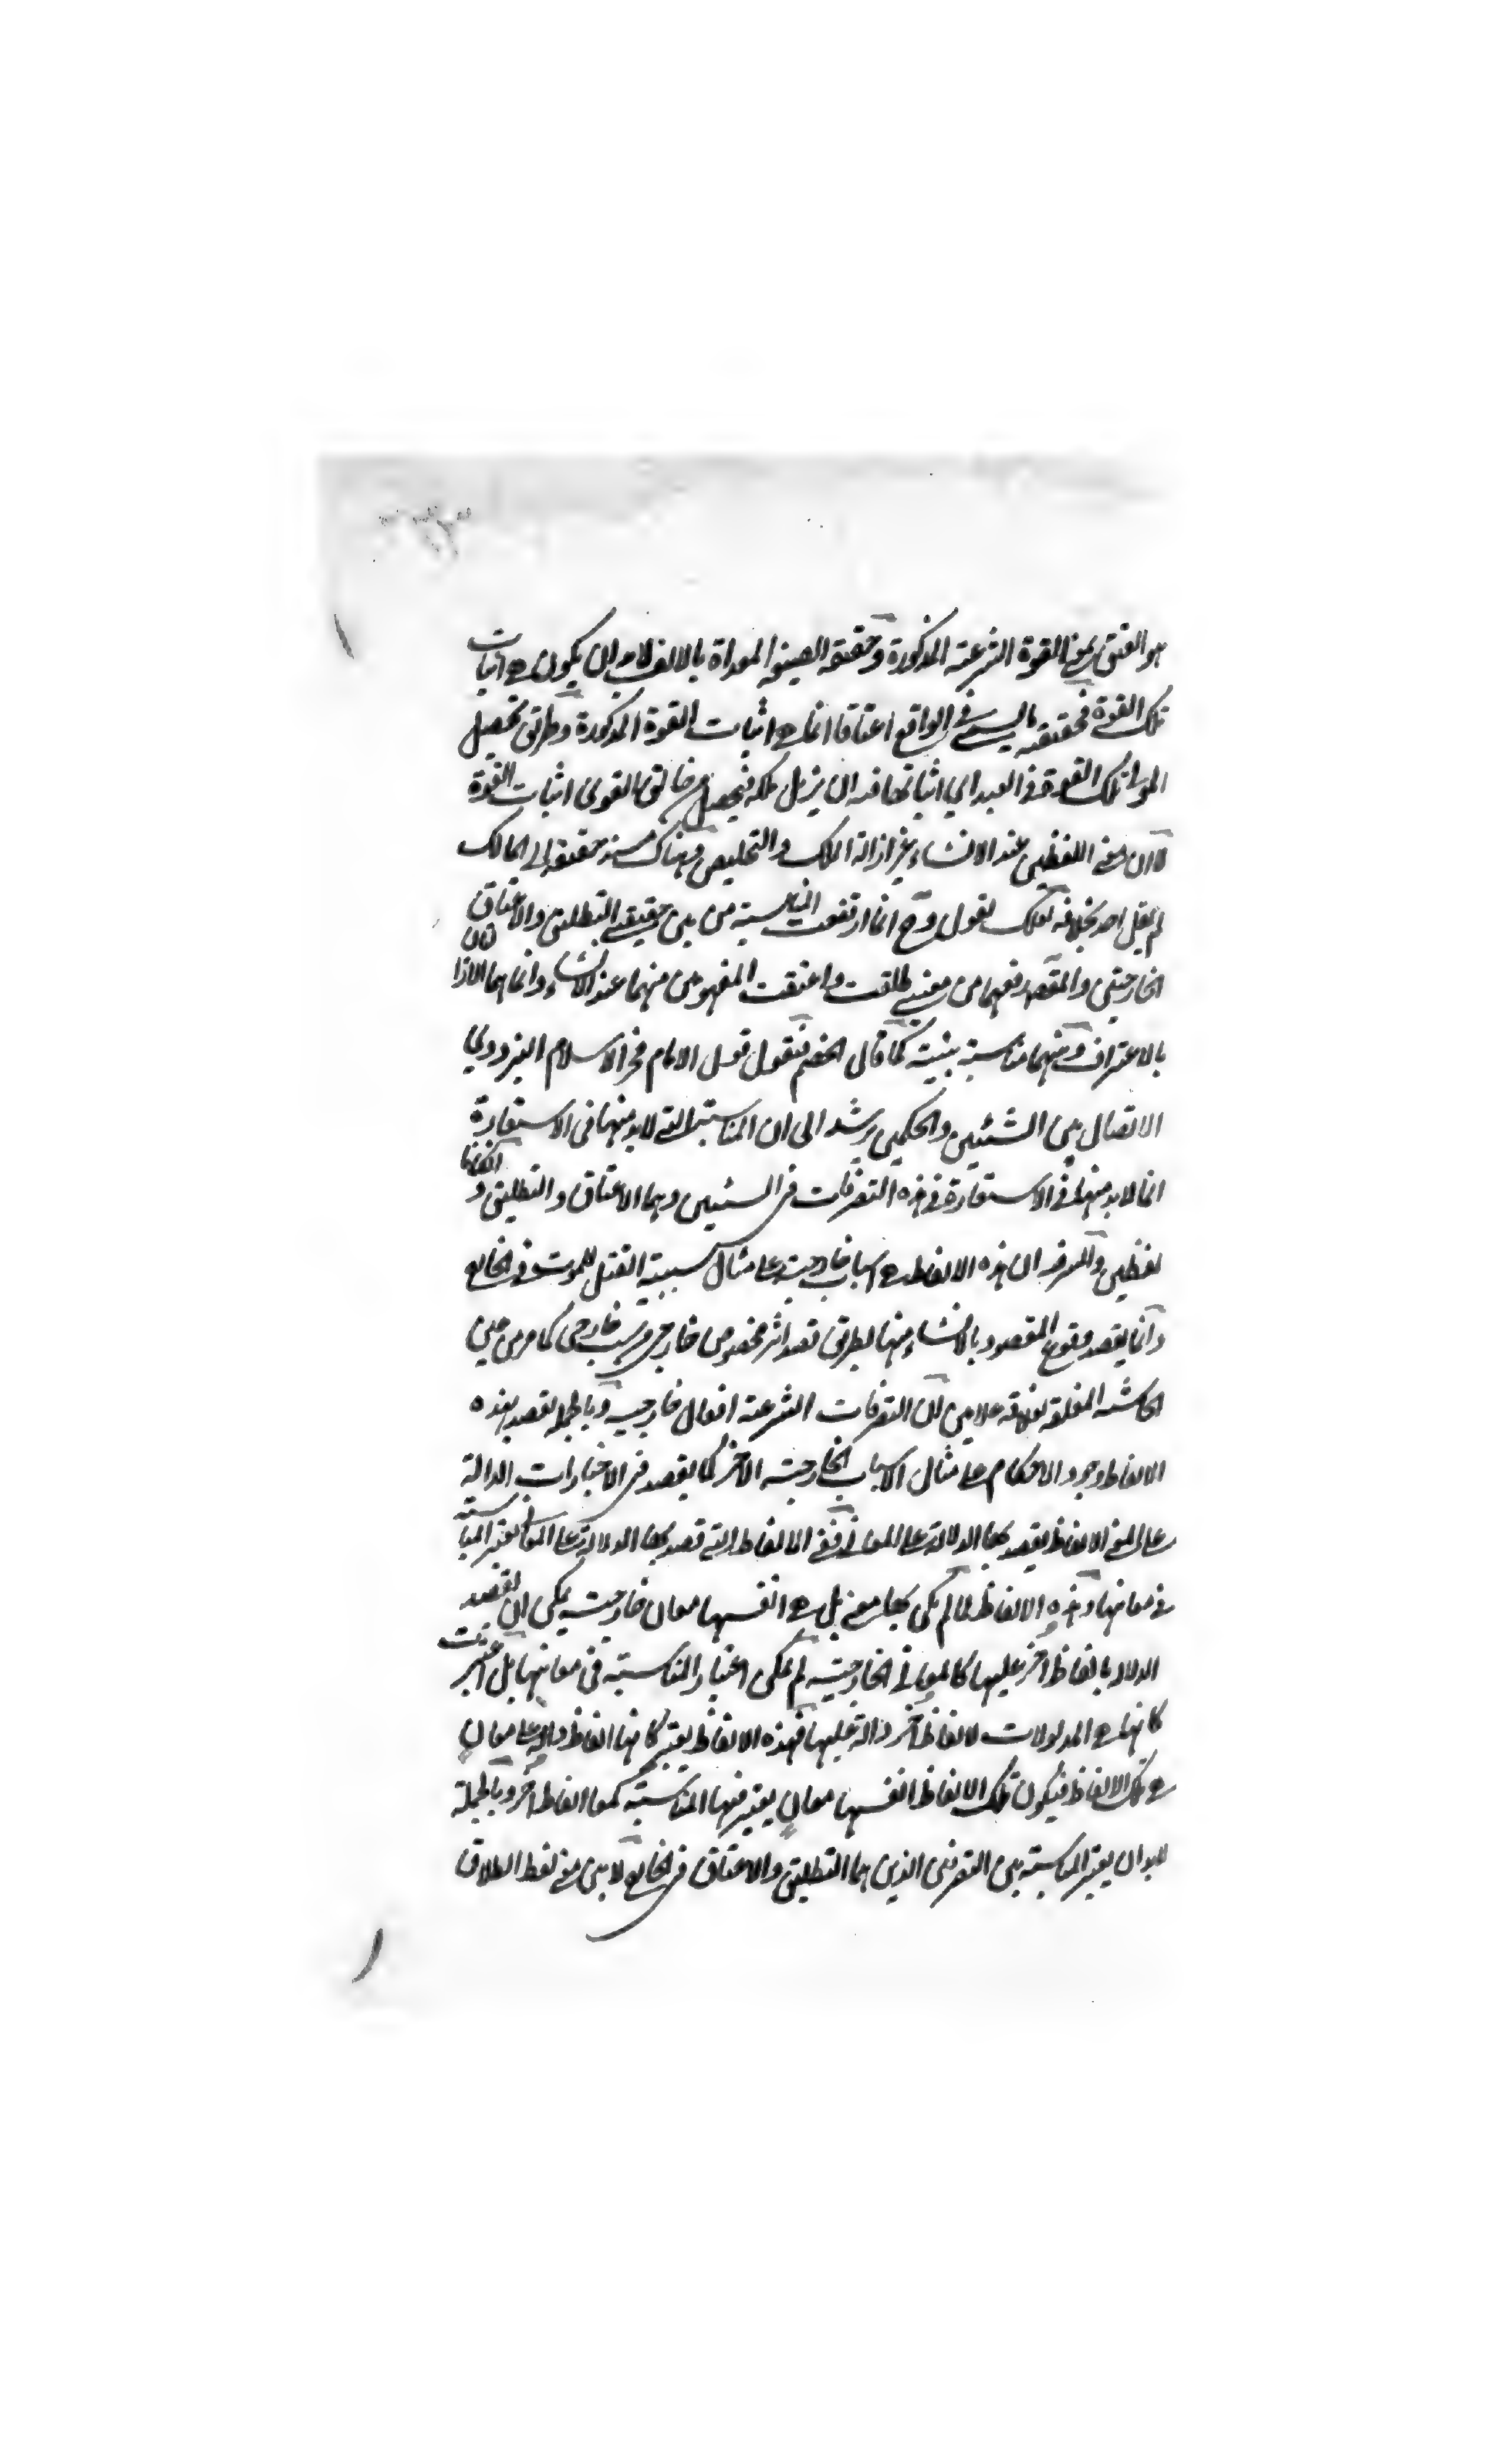 هو العتق بمعنى القوة الشرعية المذكورة وحقيقة الصيغة المعداة بالالف لا بد ان يكون هي اثبات
تلك القوة فحقيقة ما ليس في الواقع اعتاقا انما هي اثبات القوة المذكورة وطريق تحصيل
المولى تلك القوة في العبد اي اثباتها فيه ان يزيل ملكه فيحصل من خالق القوى اثبات القوة
لا ان معنى اللفظين عند الانشاء غير ازالة الملك والتخليص وهناك مسند حقيقة الى المالك
لم يقل احد بخلافه لعلك تقول وح انما ارتفعت المناسبة من بين حقيقتي التطليق والاعتاق
الخارجيتين والمقصد رفعهما من معنيي طلقت واعتقت المفهومين منهما عند الانشاء وانما هما الازالتان
بالاعتراف وبينهما مناسبة بينة كما قال الخصم فنقول قول الامام فخر الاسلام البزدوي
الاتصال بين الشيئين والحكمين يرشد الى ان المناسبة التي لا بد منها في الاستعارة
انما لا بد منها في الاستعارة في هذه التصرفات في الشيئين وهما الاعتاق والتطليق و
لفظين والسر فيه ان هذه الالفاظ هي اسباب خارجية على مثال سببية القتل للموت في الخارج
وانما يقصد وقوع المقصود بالانشاء منها بطريق قصد اثر مخصوص خارجي من سبب خارجي كما مر من حين
الحاشية المغلقة بورقة علامتين ان التصرفات الشرعية افعال خارجية وبالجملة يقصد بهذه
الالفاظ وجود الاحكام على مثال الاسباب الخارجية الاخر كما يقصد في الاخبارات الدالة
على المعنى الالفاظ يقصد بها الدلالة على المعاني ففي الالفاظ التي قصد بها الدلالة على المعاني يعتبر المناسبة
في معانيها وهذه الالفاظ لما لم يكن بها معنى بل هي انفسها معان خارجية يمكن ان يقصد
الدلالة بالفاظ اخر عليها كالمعاني الخارجية لم يمكن اعتبار المناسبة في معانيها بل اعتبرت
كانها هي المدلولات لالفاظ اخر دالة عليها فهذه الالفاظ يعتبر كانها الفاظ دالة على معان
هي تلك الالفاظ فيكون تلك الالفاظ انفسها معان يعتبر فيها المناسبة كمعاني الفاظ اخر وبالجملة
لا بد ان يعتبر المناسبة بين التصرفين الذين هما التطليق والاعتاق في الخارج لا بين معنى لفظ الطلاق